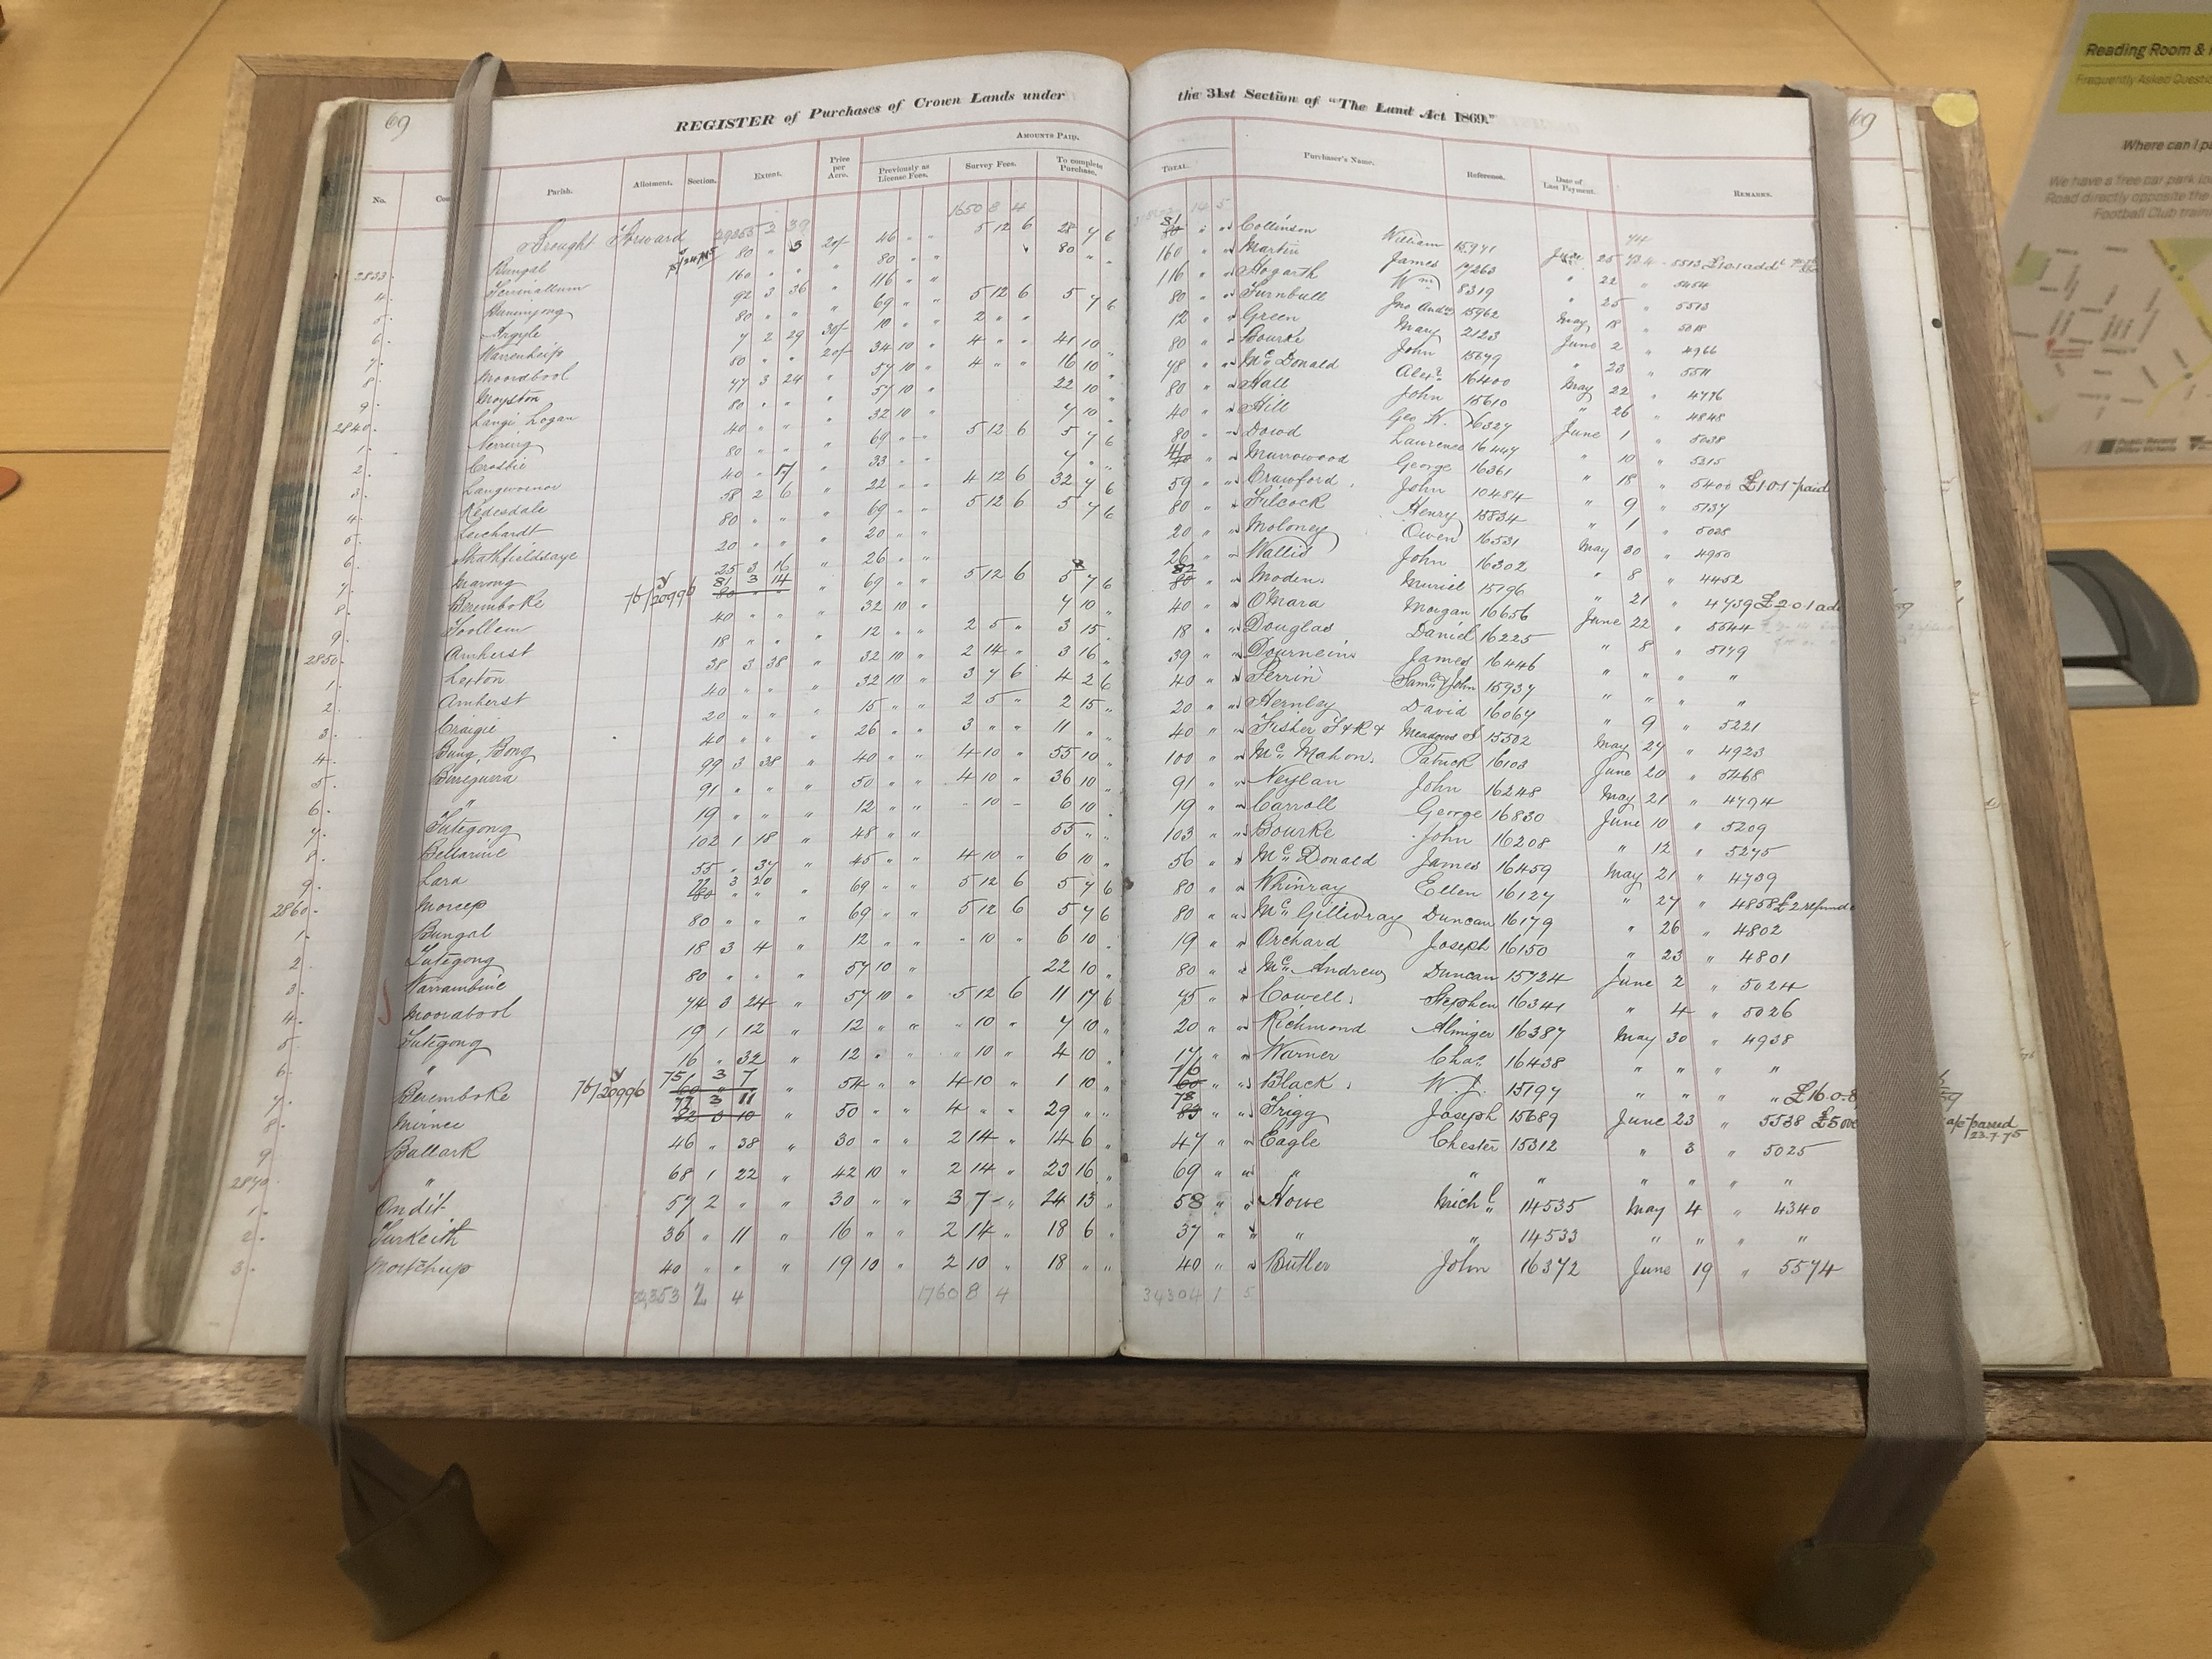 69
REGISTER of Purchases of Crown Lands under the 31st Section of "The Land Act 1869."
69
AMOUNTS PAID.
No. Parish. Allotment. Section. Extent. Price per Acre. Previously as License Fees. Survey Fees. To complete Purchase. TOTAL. Purchaser's Name. Reference. Date of Last Payment. REMARKS.
1650 8 4
Brought Forward
2833 Bungal 80 " 3 20/- 46 " " 5 12 6 28 7 6 81 " " Collinson William 15971 June 25 74
4 Terrinallum 160 " " " 80 " " 80 " " 160 " " Martin James
5 Buninyong 92 3 36 " 116 " " 116 " " Hogarth Wm 8319 " 22 " 5454
6 Argyle 80 " " " 69 " " 5 12 6 5 7 6 80 " " Turnbull 15962 " 25 " 5513
7 Warrenheip 7 2 29 30/- 10 " " 2 " " 12 " " Green Mary 2123 May 18 " 5018
8 Moorabool 80 " " 20/- 34 10 " 4 " " 41 10 " 80 " " Bourke John 15679 June 2 " 4966
9 Moyston 47 3 24 " 57 10 " 4 " " 16 10 " 48 " " McDonald Alexr 16400 " 23 " 5511
2840 Langi Logan 80 " " " 57 10 " 22 10 " 80 " " Hall John 15610 May 22 " 4776
1 Nerring 40 " " " 32 10 " 7 10 " 40 " " Hill Geo " 26 " 4848
2 Crosbie 80 " " " 69 " " 5 12 6 5 7 6 80 " " Dowd Laurence 16447 June 1 " 5038
3 40 " 17 " 33 " " 7 " " 41 " " Murrowood George 16361 " 10 " 5215
4 Redesdale 58 2 6 " 22 " " 4 12 6 32 7 6 59 " " Crawford John 10484 " 18 " 5400 £1.0.1 paid
5 Leichardt 80 " " " 69 " " 5 12 6 5 7 6 80 " " Silcock Henry 15834 " 9 " 5137
6 Strathfieldsaye 20 " " " 20 " " 20 " " Moloney Owen 16531 " 1 " 5028
7 Marong 25 3 16 " 26 " " 26 " " Wallis John 16302 May 30 " 4950
8 Beremboke 75/20996 81 3 14 " 69 " " 5 12 6 5 7 6 82 " " Moden Muriel 15796 " 8 " 4452
9 Toollem 40 " " " 32 10 " 7 10 " 40 " " O'Mara Morgan 16656 " 21 " 4739 £2.0.1 add
2850 Amherst 18 " " " 12 " " 2 5 " 3 15 " 18 " " Douglas Daniel 16225 June 22 " 5544
1 Lexton 38 3 38 " 32 10 " 2 14 " 3 16 " 39 " " Dournein James 16446 " 8 " 5179
2 Amherst 40 " " " 32 10 " 3 7 6 4 2 6 40 " " Perrin Saml John 15937 " " " "
3 Craigie 20 " " " 15 " " 2 5 " 2 15 " 20 " " Hernley David 16067 " " " "
4 Bung Bong 40 " " " 26 " " 3 " " 11 " " 40 " " Fisher T & R & Meadows J 15502 " 9 " 5221
5 Burreguera 99 3 38 " 40 " " 4 10 " 55 10 " 100 " " McMahon Patrick 16103 May 27 " 4923
6 " 91 " " " 50 " " 4 10 " 36 10 " 91 " " Neylan John 16248 June 20 " 5468
7 Tutegong 19 " " " 12 " " " 10 " 6 10 " 19 " " Carroll George 16830 May 21 " 4794
8 Bellarine 102 1 18 " 48 " " 55 " " 103 " " Bourke John 16208 June 10 " 5209
9 Lara 55 " 37 " 45 " " 4 10 " 6 10 " 56 " " McDonald James 16459 " 12 " 5275
2860 Moreep 77 3 20 " 69 " " 5 12 6 5 7 6 80 " " Whinray Ellen 16127 May 21 " 4739
1 Bungal 80 " " " 69 " " 5 12 6 5 7 6 80 " " McGillivray Duncan 16179 " 27 " 4858 £2 refund
2 Tutegong 18 3 4 " 12 " " " 10 " 6 10 " 19 " " Orchard Joseph 16150 " 26 " 4802
3 Warrambine 80 " " " 57 10 " 22 10 " 80 " " McAndrew Duncan 15724 " 23 " 4801
4 Moorabool 74 3 24 " 57 10 " 5 12 6 11 17 6 75 " " Cowell Stephen 16341 June 2 " 5024
5 Tutegong 19 1 12 " 12 " " " 10 " 7 10 " 20 " " Richmond Almiger 16387 " 4 " 5026
6 " 16 " 32 " 12 " " " 10 " 4 10 " 17 " " Warner Chas 16438 May 30 " 4938
7 Beremboke 75/20996 75 3 7 " 54 " " 4 10 " 1 10 " 76 " " Black W. J. 15197 " " " " £16.0.8
8 Mirnee 77 3 11 " 50 " " 4 " " 29 " " 78 " " Trigg Joseph 15689 June 23 " 5538 £5
9 Ballark 46 " 38 " 30 " " 2 14 " 14 6 " 47 " " Eagle Chester 15312 " 3 " 5025
2870 " 68 1 22 " 42 10 " 2 14 " 23 16 " 69 " " " " " " " "
1 Ondit 57 2 " " 30 " " 3 7 " 24 13 " 58 " " Howe Michl 14535 May 4 " 4340
2 Turkeith 36 " 11 " 16 " " 2 14 " 18 6 " 37 " " " " 14533 " " " "
3 Mortchup 40 " " " 19 10 " 2 10 " 18 " " 40 " " Butler John 16372 June 19 " 5574
32,353 2 4 1760 8 4 34304 1 5
passed
23.7.75
Reading Room &
Frequently Asked Questio
Where can I pa
We have a free car park lo
Road directly opposite the
Football Club train
Public Record
Office Victoria